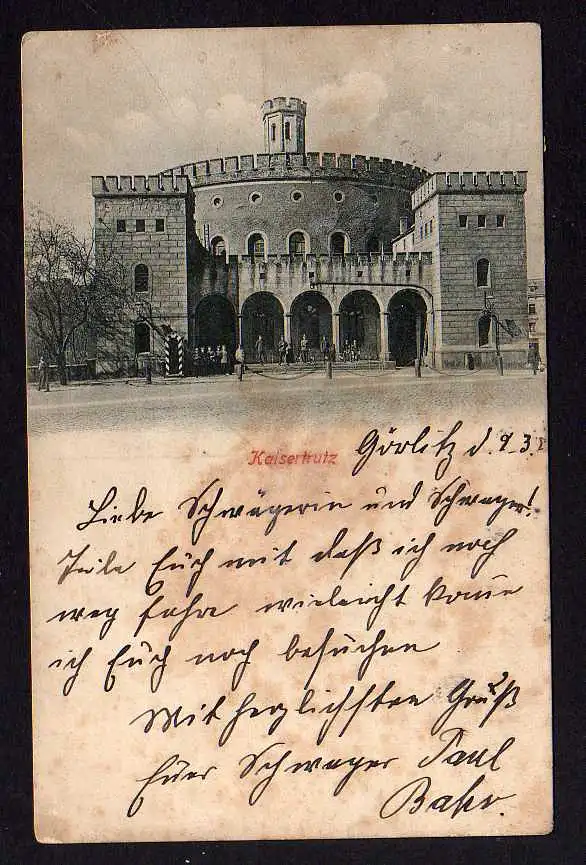 Kaisertrutz
Görlitz d. 9.3.
Liebe Schwägerin und Schwager!
Teile Euch mit daß ich noch
weg fahre vieleicht komme
ich Euch noch besuchen
Mit herzlichsten Gruß
Euer Schwager Paul